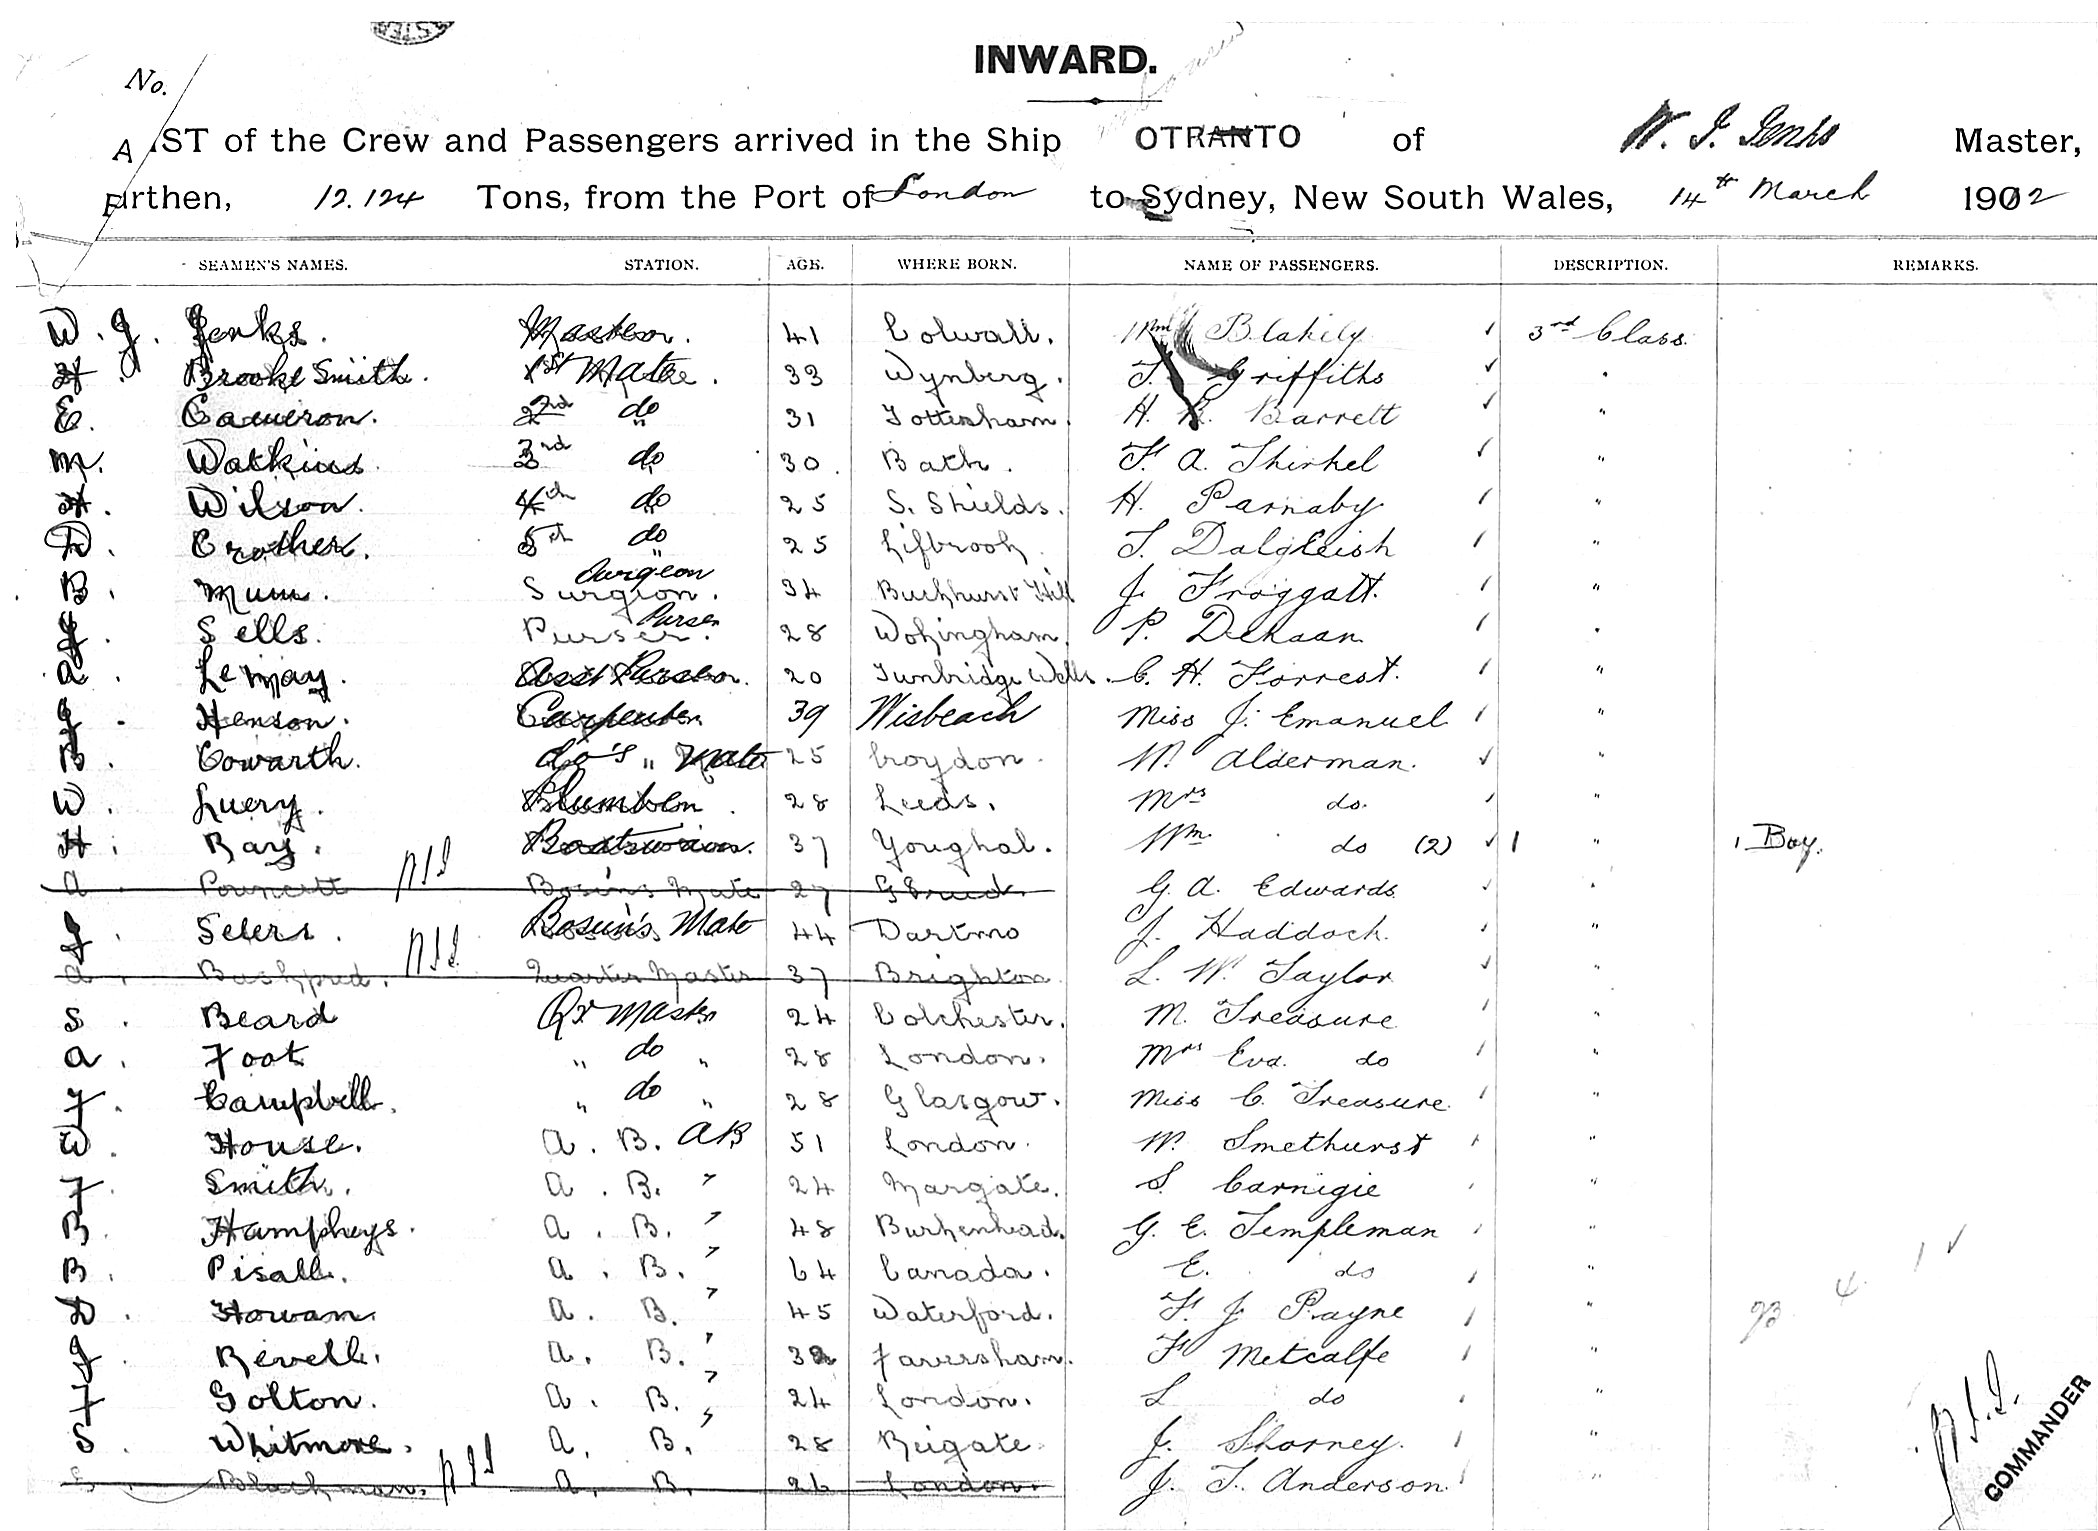 INWARD.
No.
A IST of the Crew and Passengers arrived in the Ship OTRANTO of W. J. Jenks Master,
urthen, 12.124 Tons, from the Port of London to Sydney, New South Wales, 14th March 1902
SEAMEN'S NAMES. STATION. AGE. WHERE BORN. NAME OF PASSENGERS. DESCRIPTION. REMARKS.
W. J. Jenks. Master. 41 Colwall. Wm Blakily 3rd Class.
H. Brooke Smith. 1st Mate. 33 Wynberg. T. Griffiths "
E. Cameron. 2nd do 31 Tottenham. H. R. Barrett "
M. Watkins. 3rd do 30. Bath. F. A. Thirkel "
H. Wilson. 4th do 25 S. Shields. H. Parnaby "
D. Crother. 5th do 25 Lifbrook. T. Dalgleish "
B. Mum. Surgion. Surgeon 34 Buckhurst Hill J. Froggatt. "
J. Sells. Purser. Purser 28 Wokingham. P. Dehaan "
A. Le May. Asst Purser. 20 Tunbridge Wells. C. H. Forrest. "
J. Henson. Carpenter 39 Wisbeach Miss J. Emanuel "
B. Cowarth. do's " Mate 25 Croydon. W. Alderman. "
W. Luery. Plumber. 28 Leeds. Mrs do. "
H. Ray. Boatswain. 37 Youghal. Wm do (2) 1 " 1 Boy.
A. Bosin's Mate 27 G. A. Edwards "
J. Selers. Bosun's Mate 44 Dartmo J. Haddock. "
A. Quarter Master 37 Brighton L. W. Taylor "
S. Beard Qr Master 24 Colchester. M. Treasure "
A. Foot " do " 28 London. Mrs Eva. do "
F. Campbell. " do " 28 Glasgow. Miss C. Treasure. "
W. House. A. B. AB 51 London. W. Smethurst "
F. Smith. A. B. " 24 Margate. S. Carnigie "
B. Hampheys. A. B. " 48 Burkenhead. G. E. Templeman "
B. Pisall. A. B. " 64 Canada. E. do "
D. Howan. A. B. " 45 Waterford. F. J. Payne "
J. Revell. A. B. " 32 Faversham. F. Metcalfe "
F. Golton. A. B. " 24 London. L do "
S. Whitmore. A. B. " 28 Reigate. J. Shorney. "
S. Blackman. A. B. 26 London. J. T. Anderson. "
COMMANDER